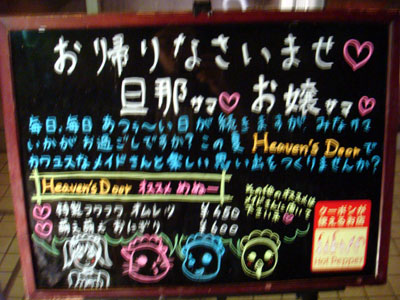 お帰りなさいませ♡
旦那サマ♡ お嬢サマ♡
毎日、毎日 あつぅ〜い日が続きますが、みなさま
いかがお過ごしですか?この夏 Heaven's Doorで
カワユスなメイドさんと楽しい思い出をつくりませんか?
Heaven's Door オススメ めぬー
♡ 特製フワフワ オムレツ ¥680
♡ 萌え萌え おにぎり ¥600
その他のオススメは
メイドさんに聞いて
下さいネ♡
クーポンが
使えるお店
Hot Pepper